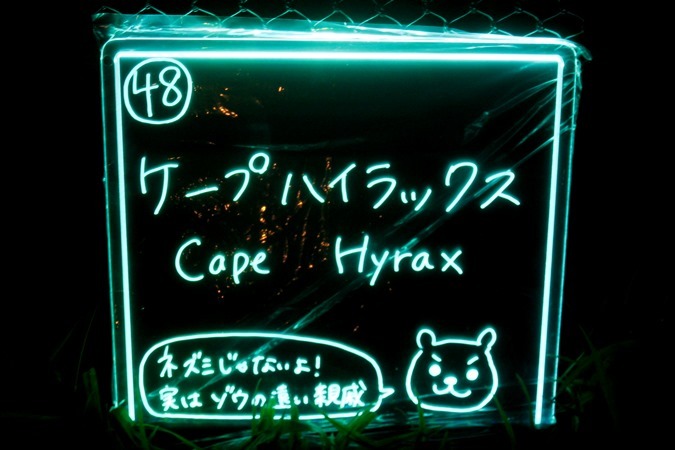 48
ケープハイラックス
Cape Hyrax
ネズミじゃないよ!
実はゾウの遠い親戚